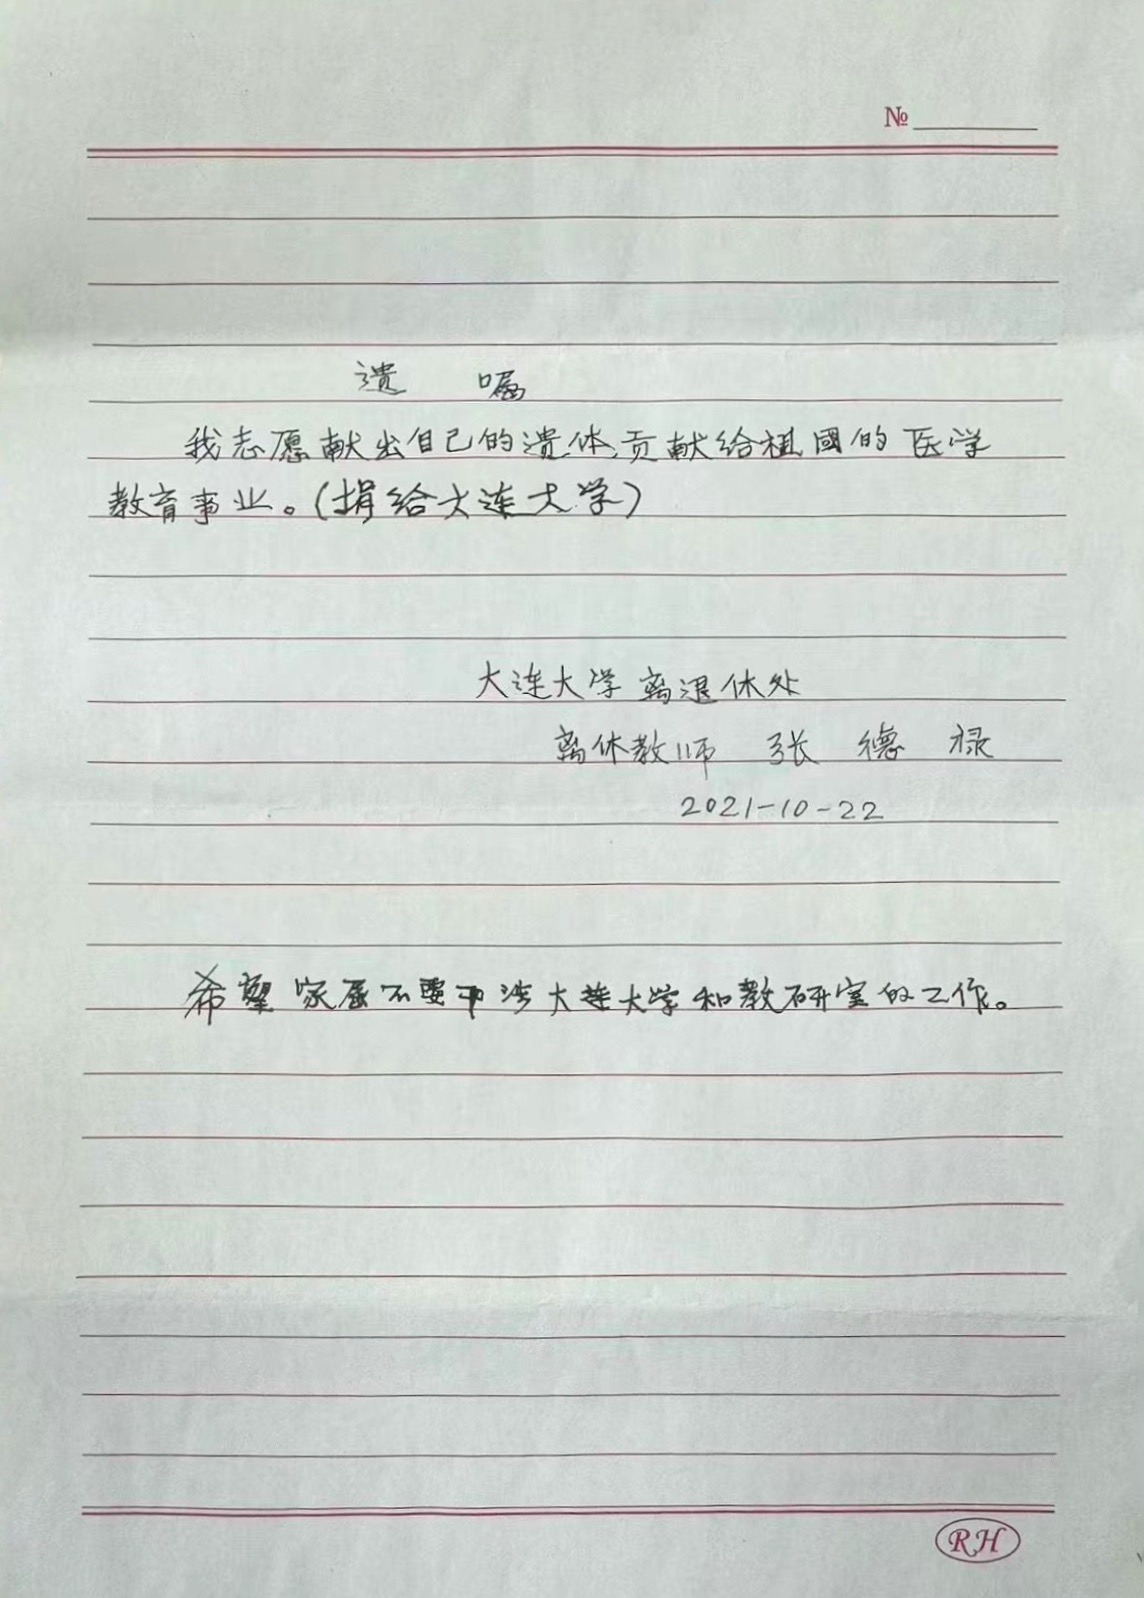 №
遗 嘱
我志愿献出自己的遗体,贡献给祖國的医学
教育事业。(捐给大连大学)
大连大学离退休处
离休教师 张 德 禄
2021-10-22
希望家属不要干涉大连大学和教研室的工作。
RH